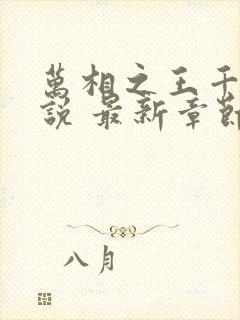 萬相之王千
說 最新章節
八月